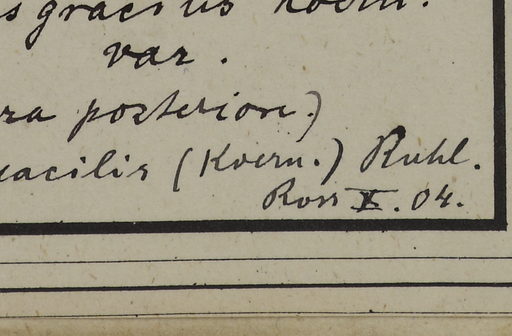 sgracilis Koern.
var.
ra posteriore)
racilis (Koern.) Ruhl.
Ross X. 04.